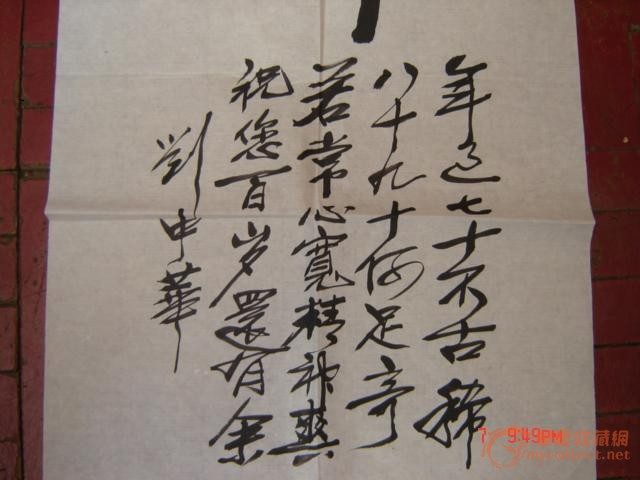 年过七十不古稀
八十九十何足奇
若常心寬精神爽
祝您百岁還有余
劉中華
7 9:49PM
藏網